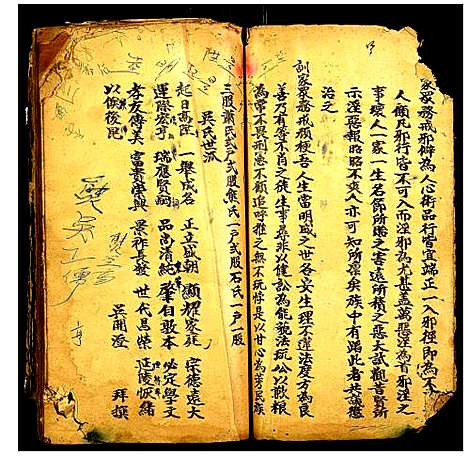 家眾務戒邪僻為人心術品行皆宜端正一入邪徑即為不
人類凡邪行皆不可入而淫邪為尤甚蓋萬惡淫為首邪淫之
事壞人一家一生名節所係之害遠所積之惡大試觀昔賢所
示淫惡報昭昭不爽人亦可知所深矣族中有蹈此者共議懲
治之
訓家眾務戒頑梗吾人生當明盛之世各安生理不違法度方為良
善乃有等不肖之徒生事尋非以健訟為能藐法玩公以敢抗
為常不畏刑憲不顧追呼推之無不玩悖是以甘心為莠民族
三股蕭氏弍戶弍股熊氏一戶弍股石氏一戶一股
吳氏世派
起日高陞 一舉成名 正立盛朝 顯耀家庭 宗德遠大
運際宏亨 瑞應賢嗣 品尚清純 肇自敦本 必定學文
孝友傳美 富貴榮興 景祚長發 世代昌榮 延陵恢緒
以俟後昆
吳開澄 拜撰